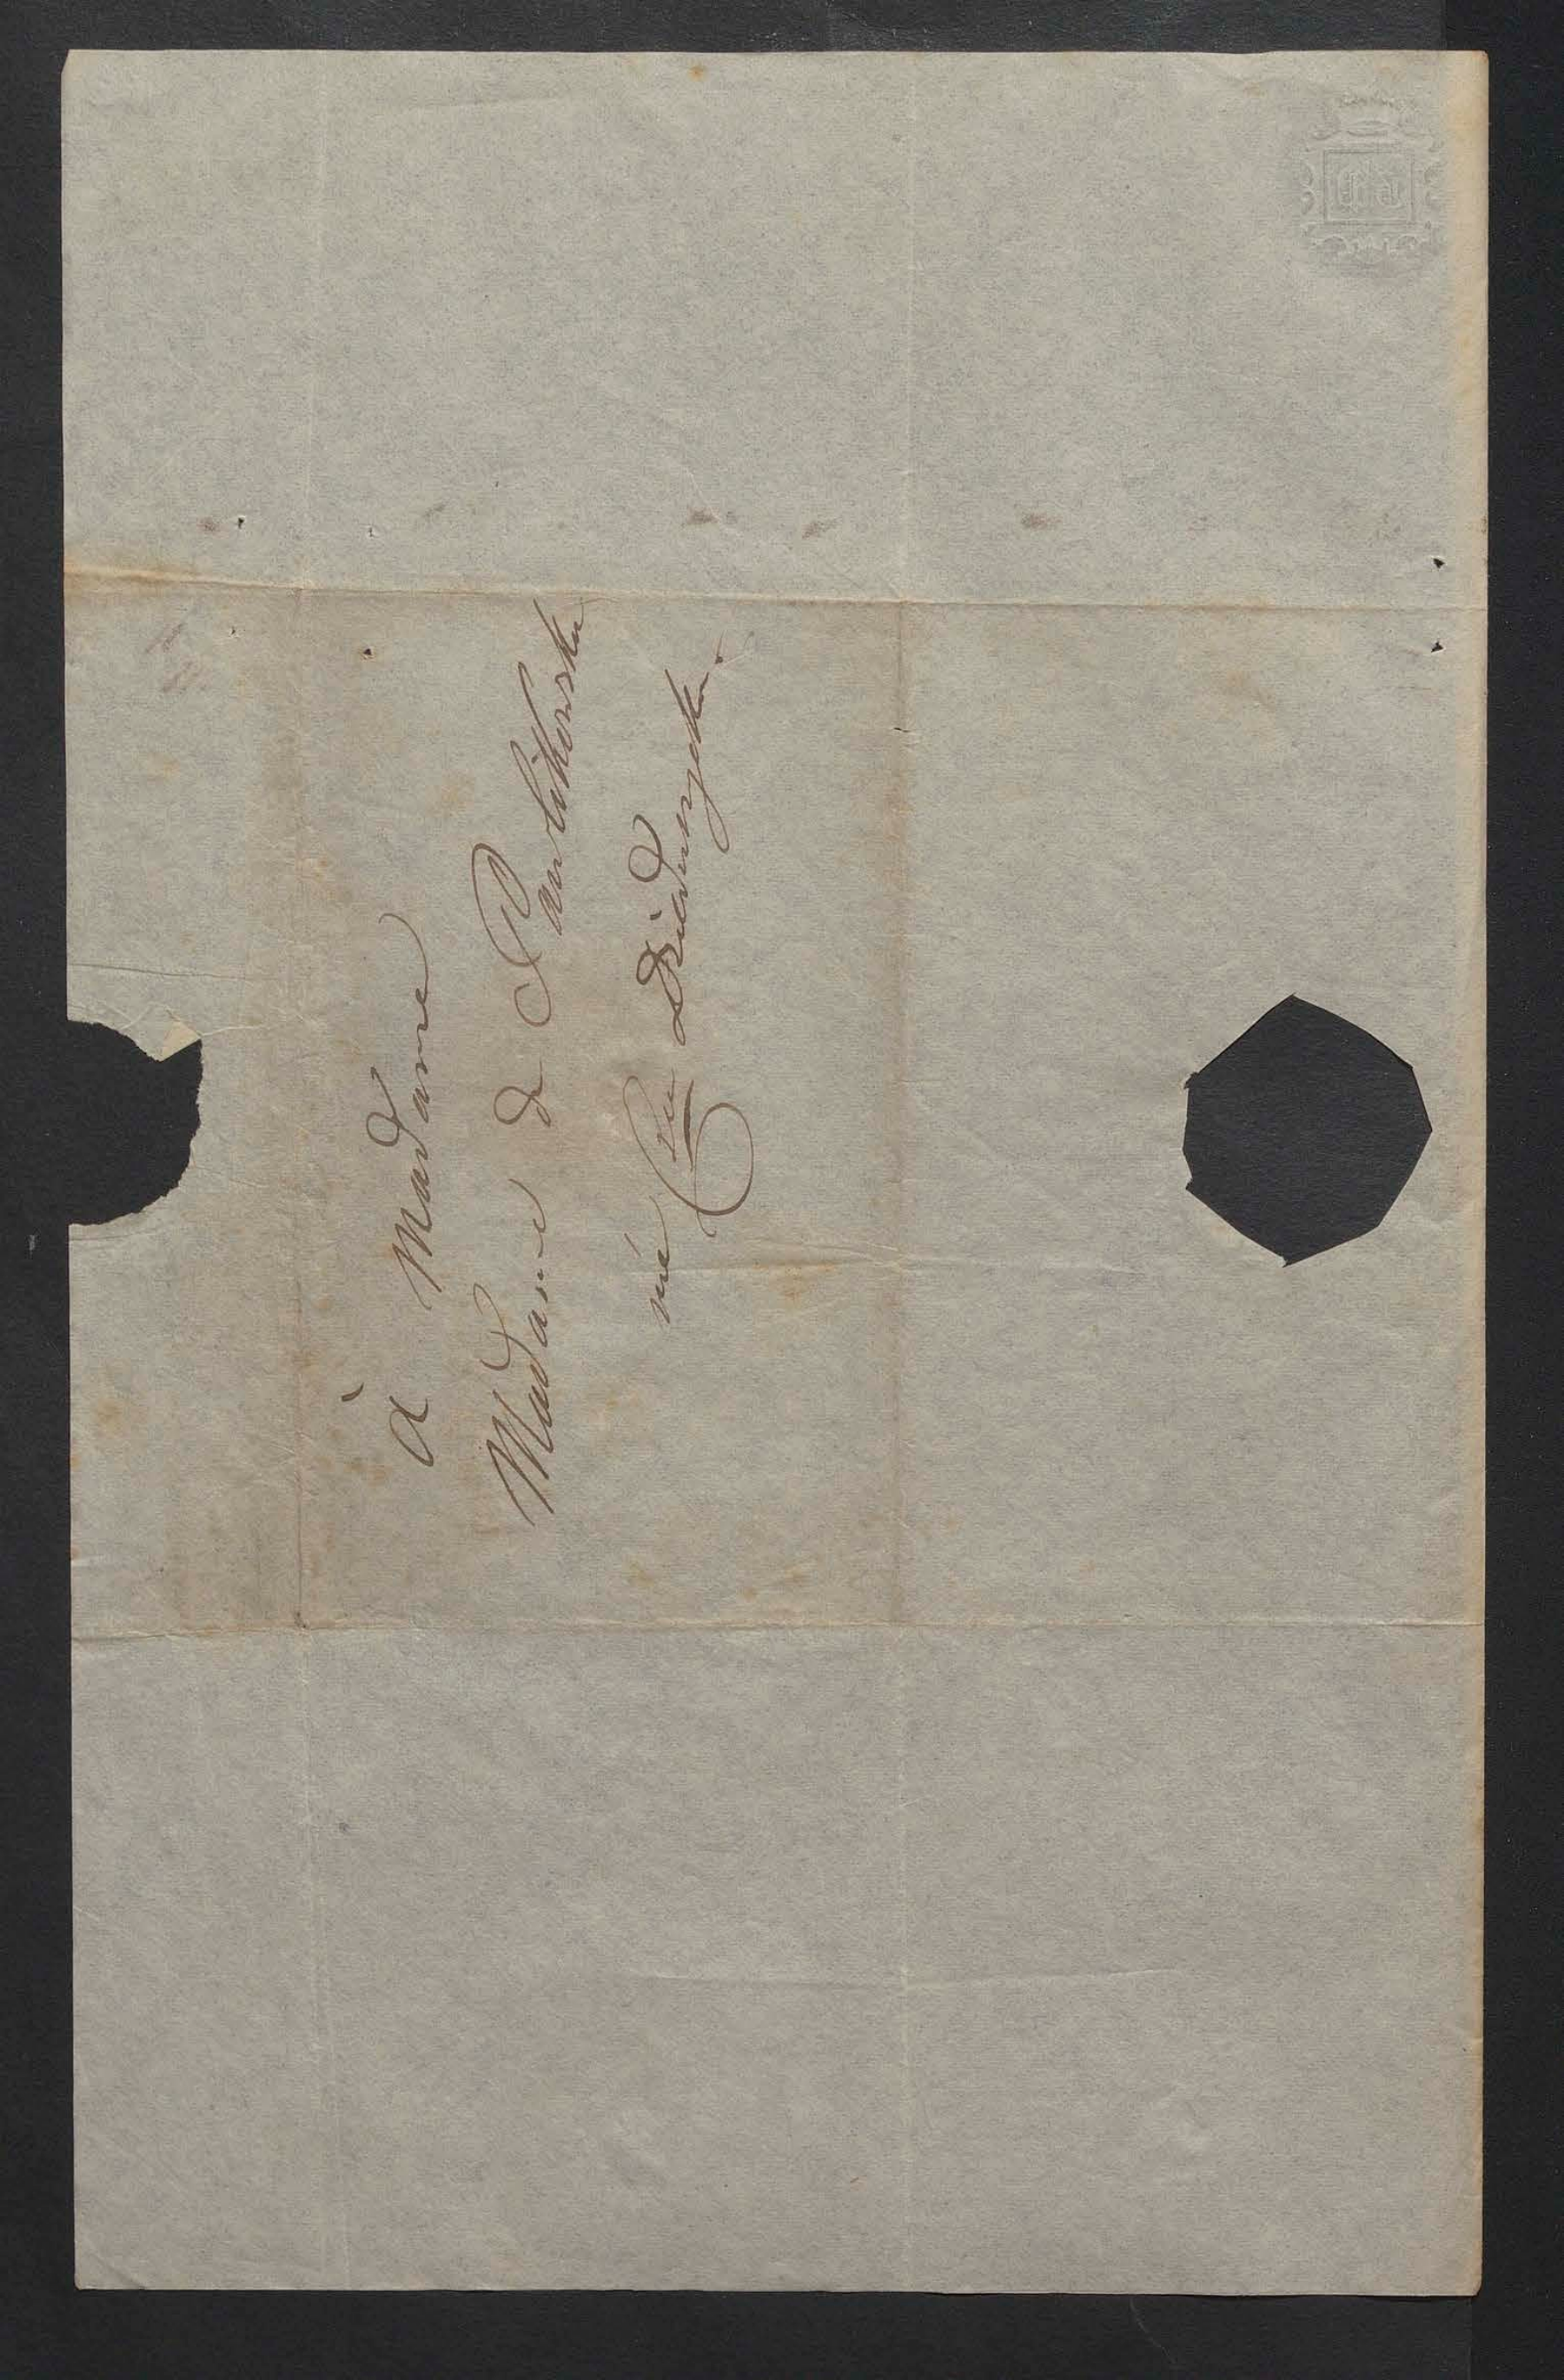 à Madame
Madame de Pawlikowska
née Csse Dzieduszycka